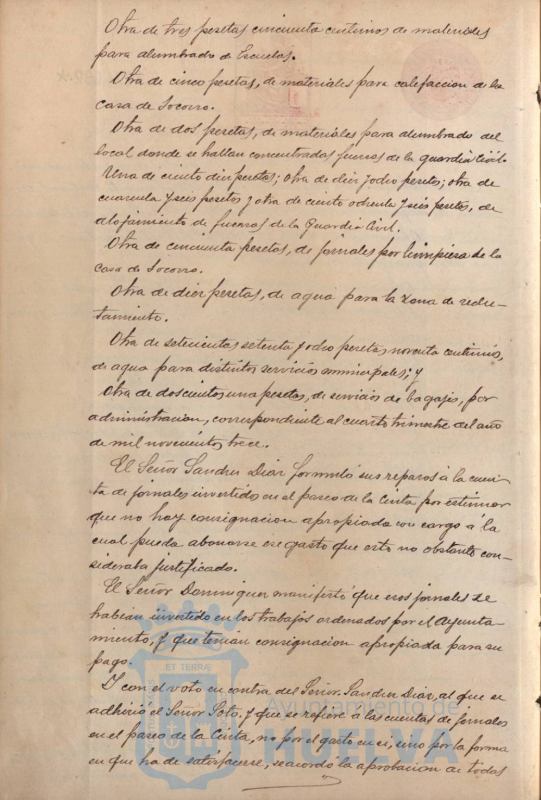 Otra de tres pesetas cincuenta centimos de materiales
para alumbrado de Escuelas.
Otra de cinco pesetas, de materiales para calefaccion de la
casa de Socorro.
Otra de dos pesetas, de materiales para alumbrado del
local donde se hallan concentradas fuerzas de la guardia Civil.
Una de ciento diez pesetas; otra de diez y ocho pesetas; otra de
cuarenta y seis pesetas y otra de ciento ochenta y seis pesetas, de
alojamiento de fuerzas de la Guardia Civil.
Otra de cincuenta pesetas, de jornales por limpieza de la
casa de Socorro.
Otra de diez pesetas, de agua para la zona de reclu-
tamiento.
Otra de setecientas setenta y ocho pesetas noventa centimos,
de agua para distintos servicios municipales; y
Otra de doscientas una pesetas, de servicios de bagajes, por
administracion, correspondiente al cuarto trimestre del año
de mil novecientos trece.
El Señor Sandru Diaz formuló sus reparos á la cuen-
ta de jornales invertidos en el paseo de la Cinta por estimar
que no hay consignacion apropiada con cargo á la
cual pueda abonarse ese gasto que esto no obstante con-
sideraba justificado.
El Señor Dominguez manifestó que esos jornales se
habian invertido en los trabajos ordenados por el Ayunta-
miento, y que tenian consignacion apropiada para su
pago.
Y con el voto en contra del Señor Sandru Diaz, al que se
adhirió el Señor Soto, y que se refiere á las cuentas de jornales
en el paseo de la Cinta, no por el gasto en si, sino por la forma
en que ha de satisfacerse, se acordó la aprobacion de todas
ET TERRÆ
Ayuntamiento de
HUELVA